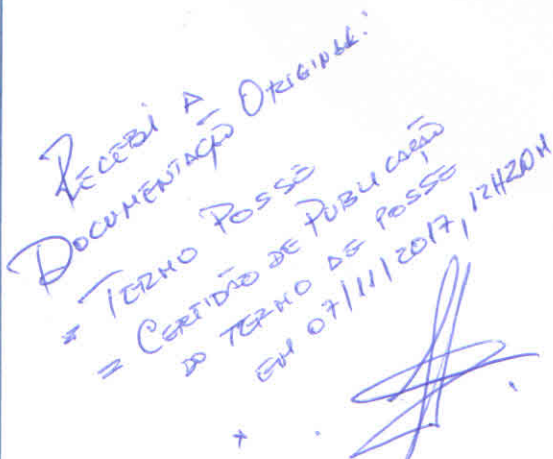 RECEBI A
DOCUMENTAÇÃO ORIGINAL:
= TERMO POSSE
= CERTIDÃO DE PUBLICAÇÃO
DO TERMO DE POSSE
EM 07/11/2017, 12H20M